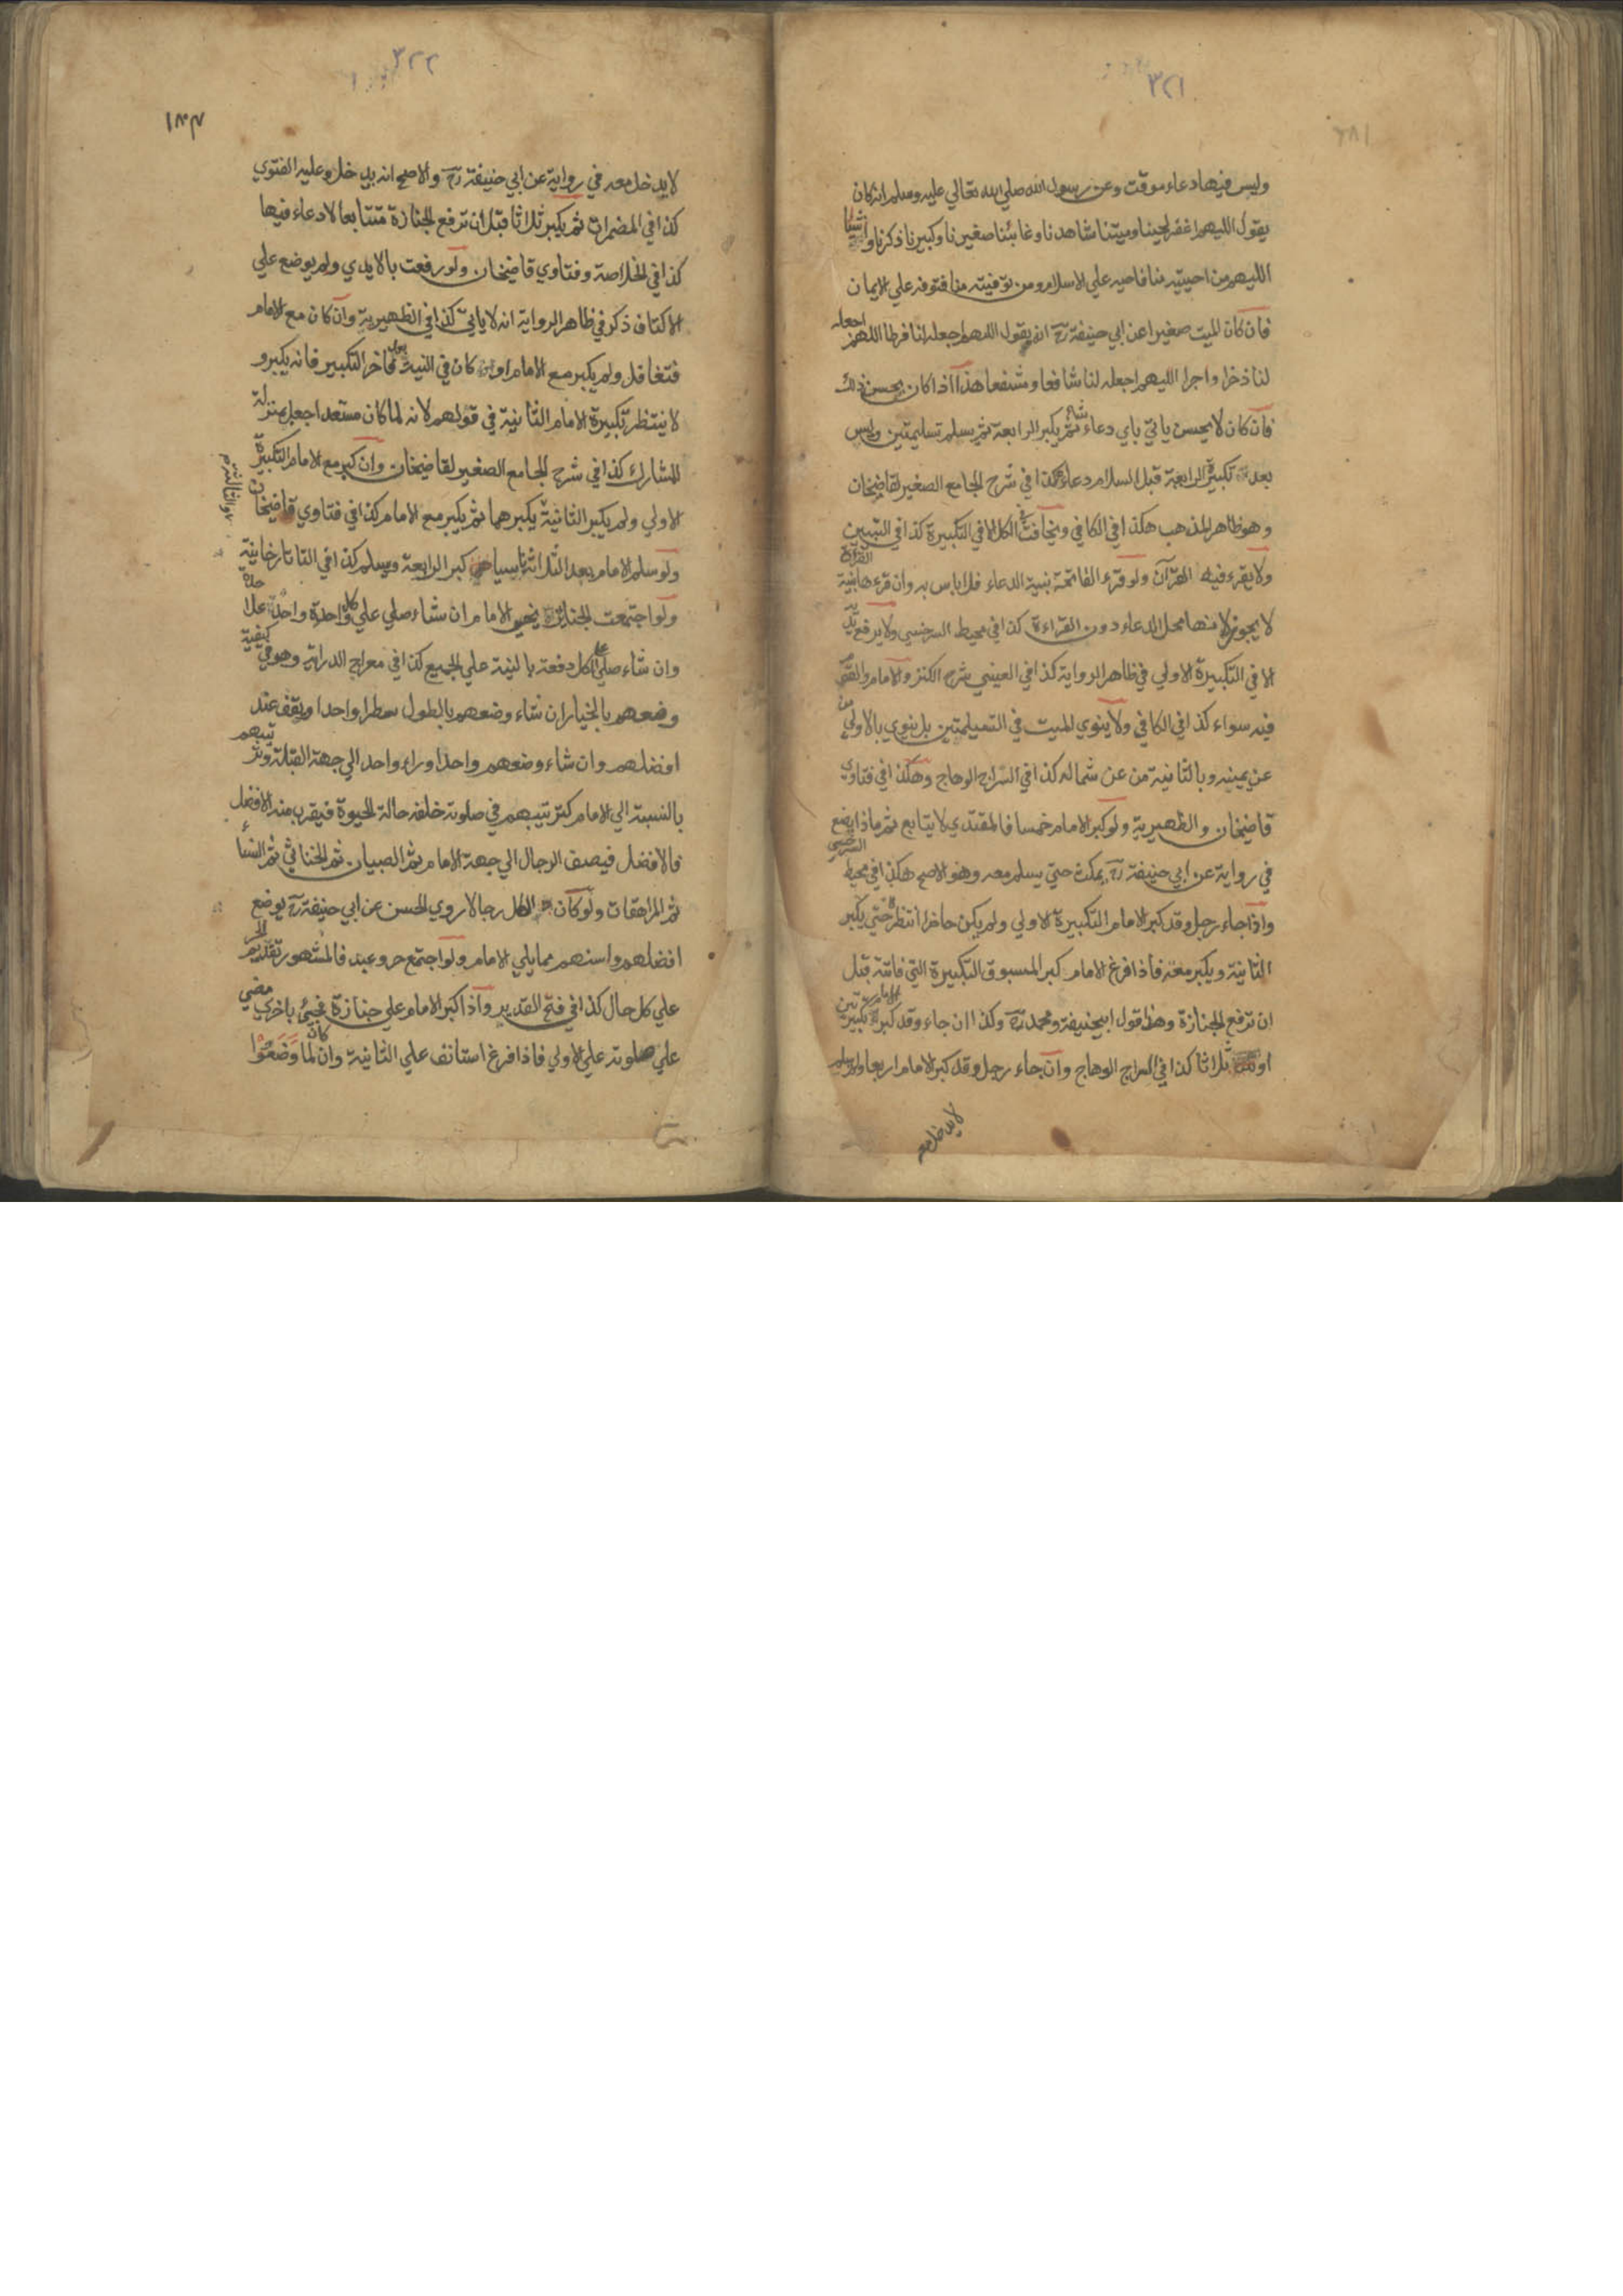 ٣٢١
١٨١
وليس فيها دعاء موقت وعن رسول الله صلي الله تعالي عليه وسلم انه كان
يقول اللهم اغفر لحينا وميتنا شاهدنا وغائبنا صغيرنا وكبيرنا ذكرنا وانثينا
اللهم من احييته منا فاحيه علي الاسلام ومن توفيته منا فتوفه علي الايمان
فان كان الميت صغيرا عن ابي حنيفة رح انه يقول اللهم اجعله لنا فرطا اللهم اجعله
لنا ذخرا واجرا اللهم اجعله لنا شافعا ومشفعا هذا اذا كان يحسن ذلك
فان كان لا يحسن ياتي باي دعاء شاء ثم يكبر الرابعة ثم يسلم تسليمتين وليس
بعد تكبيرة الرابعة قبل السلام دعاء هكذا في شرح الجامع الصغير لقاضيخان
وهو ظاهر المذهب هكذا في الكافي ويخافت في الكل الا في التكبيرة كذا في التبيين
ولا يقرء فيها القرآن ولو قرء الفاتحة بنية الدعاء فلا باس به وان قرءها بنية القراءة
لا يجوز لانها محل الدعاء دون القراءة كذا في محيط السرخسي ولا يرفع يديه
الا في التكبيرة الاولي في ظاهر الرواية كذا في العيني شرح الكنز والامام والقوم
فيه سواء كذا في الكافي ولا ينوي الميت في التسليمتين بل ينوي بالاولي من
عن يمينه وبالثانية من عن شماله كذا في السراج الوهاج وهكذا في فتاوي
قاضيخان والظهيرية ولو كبر الامام خمسا فالمقتدي لا يتابع ثم ماذا يصنع
في رواية عن ابي حنيفة رح يمكث حتي يسلم معه وهو الاصح هكذا في محيط السرخسي
واذا جاء رجل وقد كبر الامام التكبيرة الاولي ولم يكن حاضرا انتظره حتي يكبر
الثانية ويكبر معه فاذا فرغ الامام كبر المسبوق التكبيرة التي فاتته قبل
ان ترفع الجنازة وهذا قول ابيحنيفة ومحمد رح وكذا ان جاء وقد كبر الامام تكبيرتين
او ثلاثا كذا في السراج الوهاج وان جاء رجل وقد كبر الامام اربعا ولم يسلم
لا يدخل معه
٣٢٢
لا يدخل معه في رواية عن ابي حنيفة رح والاصح انه يدخل وعليه الفتوي
كذا في المضمرات ثم يكبر ثلاثا قبل ان ترفع الجنازة متتابعا لا دعاء فيها
كذا في الخلاصة وفتاوي قاضيخان ولو رفعت بالايدي ولم يوضع علي
الاكتاف ذكر في ظاهر الرواية انه لا ياتي كذا في الظهيرية وان كان مع الامام
فتغافل ولم يكبر مع الامام او كان في النية بعد فاخر التكبير فانه يكبر و
لا ينتظر تكبيرة الامام الثانية في قولهم لانه لما كان مستعدا جعل بمنزلة
المشارك كذا في شرح الجامع الصغير لقاضيخان وان كبر مع الامام التكبيرة
الاولي ولم يكبر الثانية والثالثة يكبرهما ثم يكبر مع الامام كذا في فتاوي قاضيخان
ولو سلم الامام بعد الثلاثة ناسيا كبر الرابعة ويسلم كذا في التاتارخانية
ولو اجتمعت الجنائز يخير الامام ان شاء صلي علي كل واحدة واحدة علاحدة
وان شاء صلي علي الكل دفعة بالنية علي الجميع كذا في معراج الدراية وهو في كيفية
وضعهم بالخيار ان شاء وضعهم بالطول سطرا واحدا ويقف عند
افضلهم وان شاء وضعهم واحدا وراء واحد الي جهة القبلة وترتيبهم
بالنسبة الي الامام كترتيبهم في صلوته خلفه حالة الحيوة فيقرب منه الافضل
فالافضل فيصف الرجال الي جهة الامام ثم الصبيان ثم الخناثي ثم النساء
ثم المراهقات ولو كان الكل رجالا روي الحسن عن ابي حنيفة رح يوضع
افضلهم واسنهم مما يلي الامام ولو اجتمع حر وعبد فالمشهور تقديم الحر
علي كل حال كذا في فتح القدير واذا كبر الامام علي جنازة فجيئ باخري مضي
علي صلوته علي الاولي فاذا فرغ استانف علي الثانية وان كان لما وضعوا